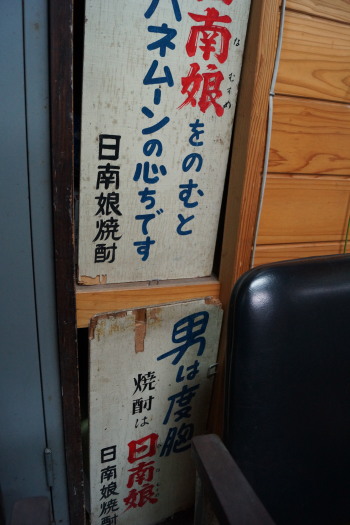 日南娘をのむと
なむすめ
ハネムーンの心ちです
日南娘焼酎
男は度胞
焼酎は日南娘
日南娘焼酎